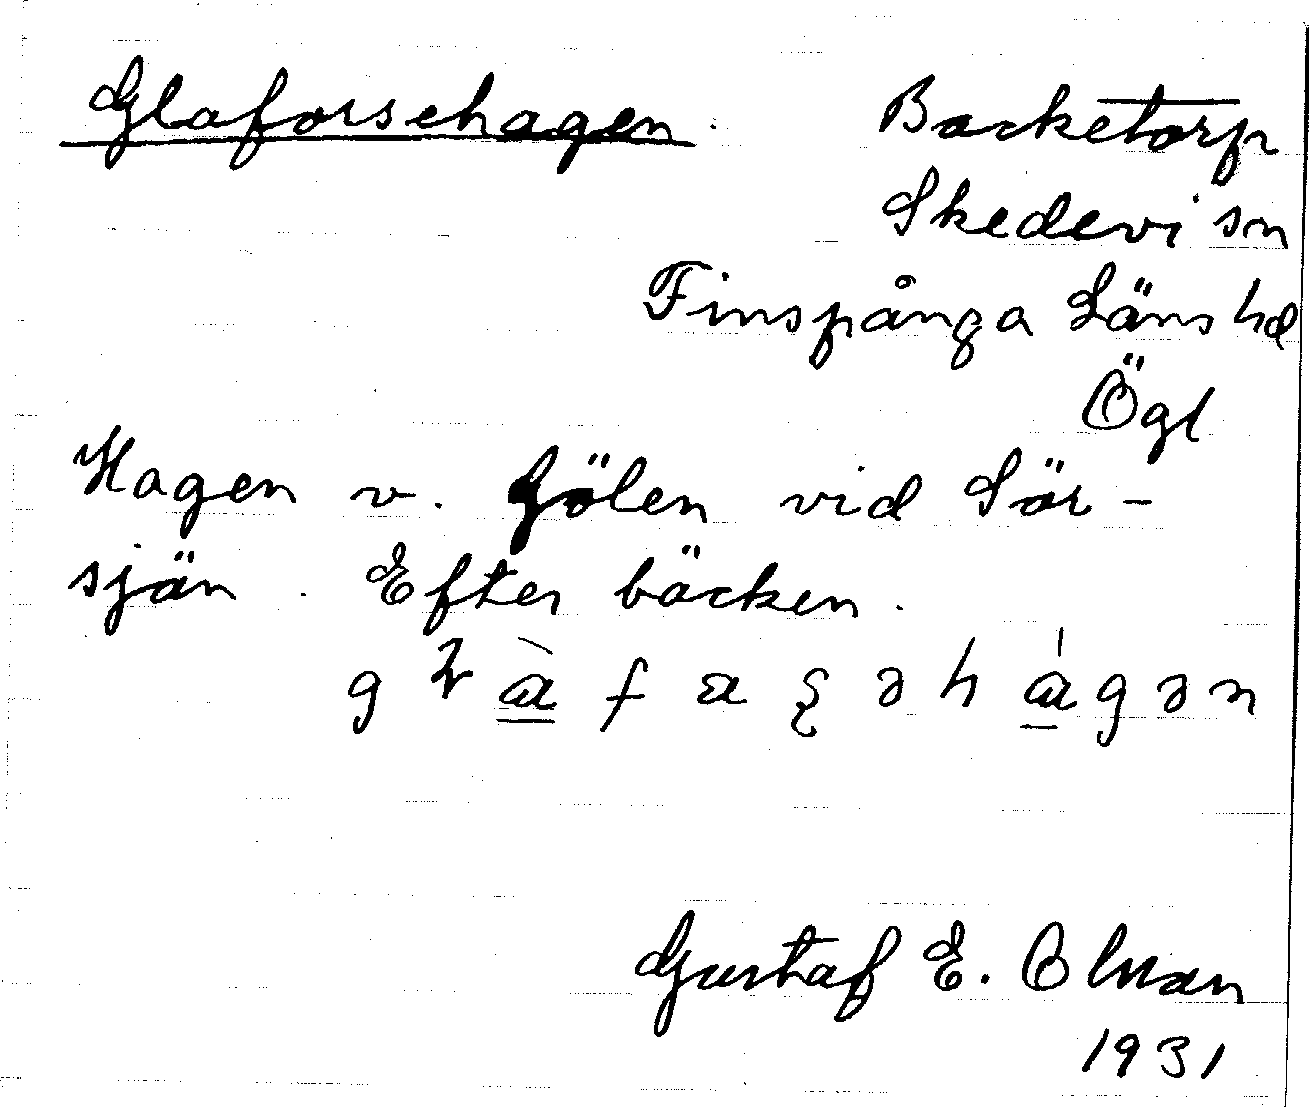 Glaforsehagen. Backetorp
Skedevi sn
Finspånga Läns hd
Ögl
Hagen v. Gölen vid Sör-
sjön. Efter bäcken.
Gustaf E. Olman
1931